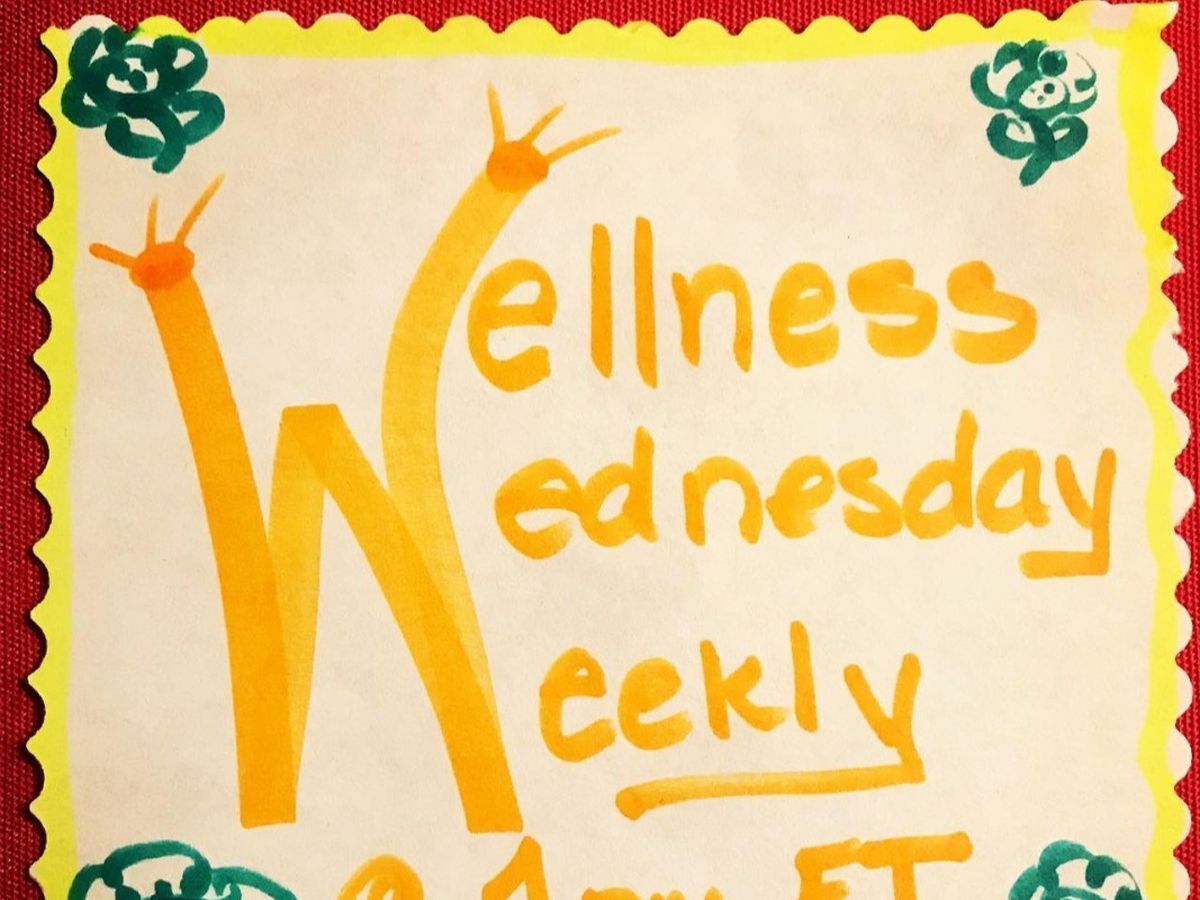 Wellness
Wednesday
Weekly
@ 1pm ET